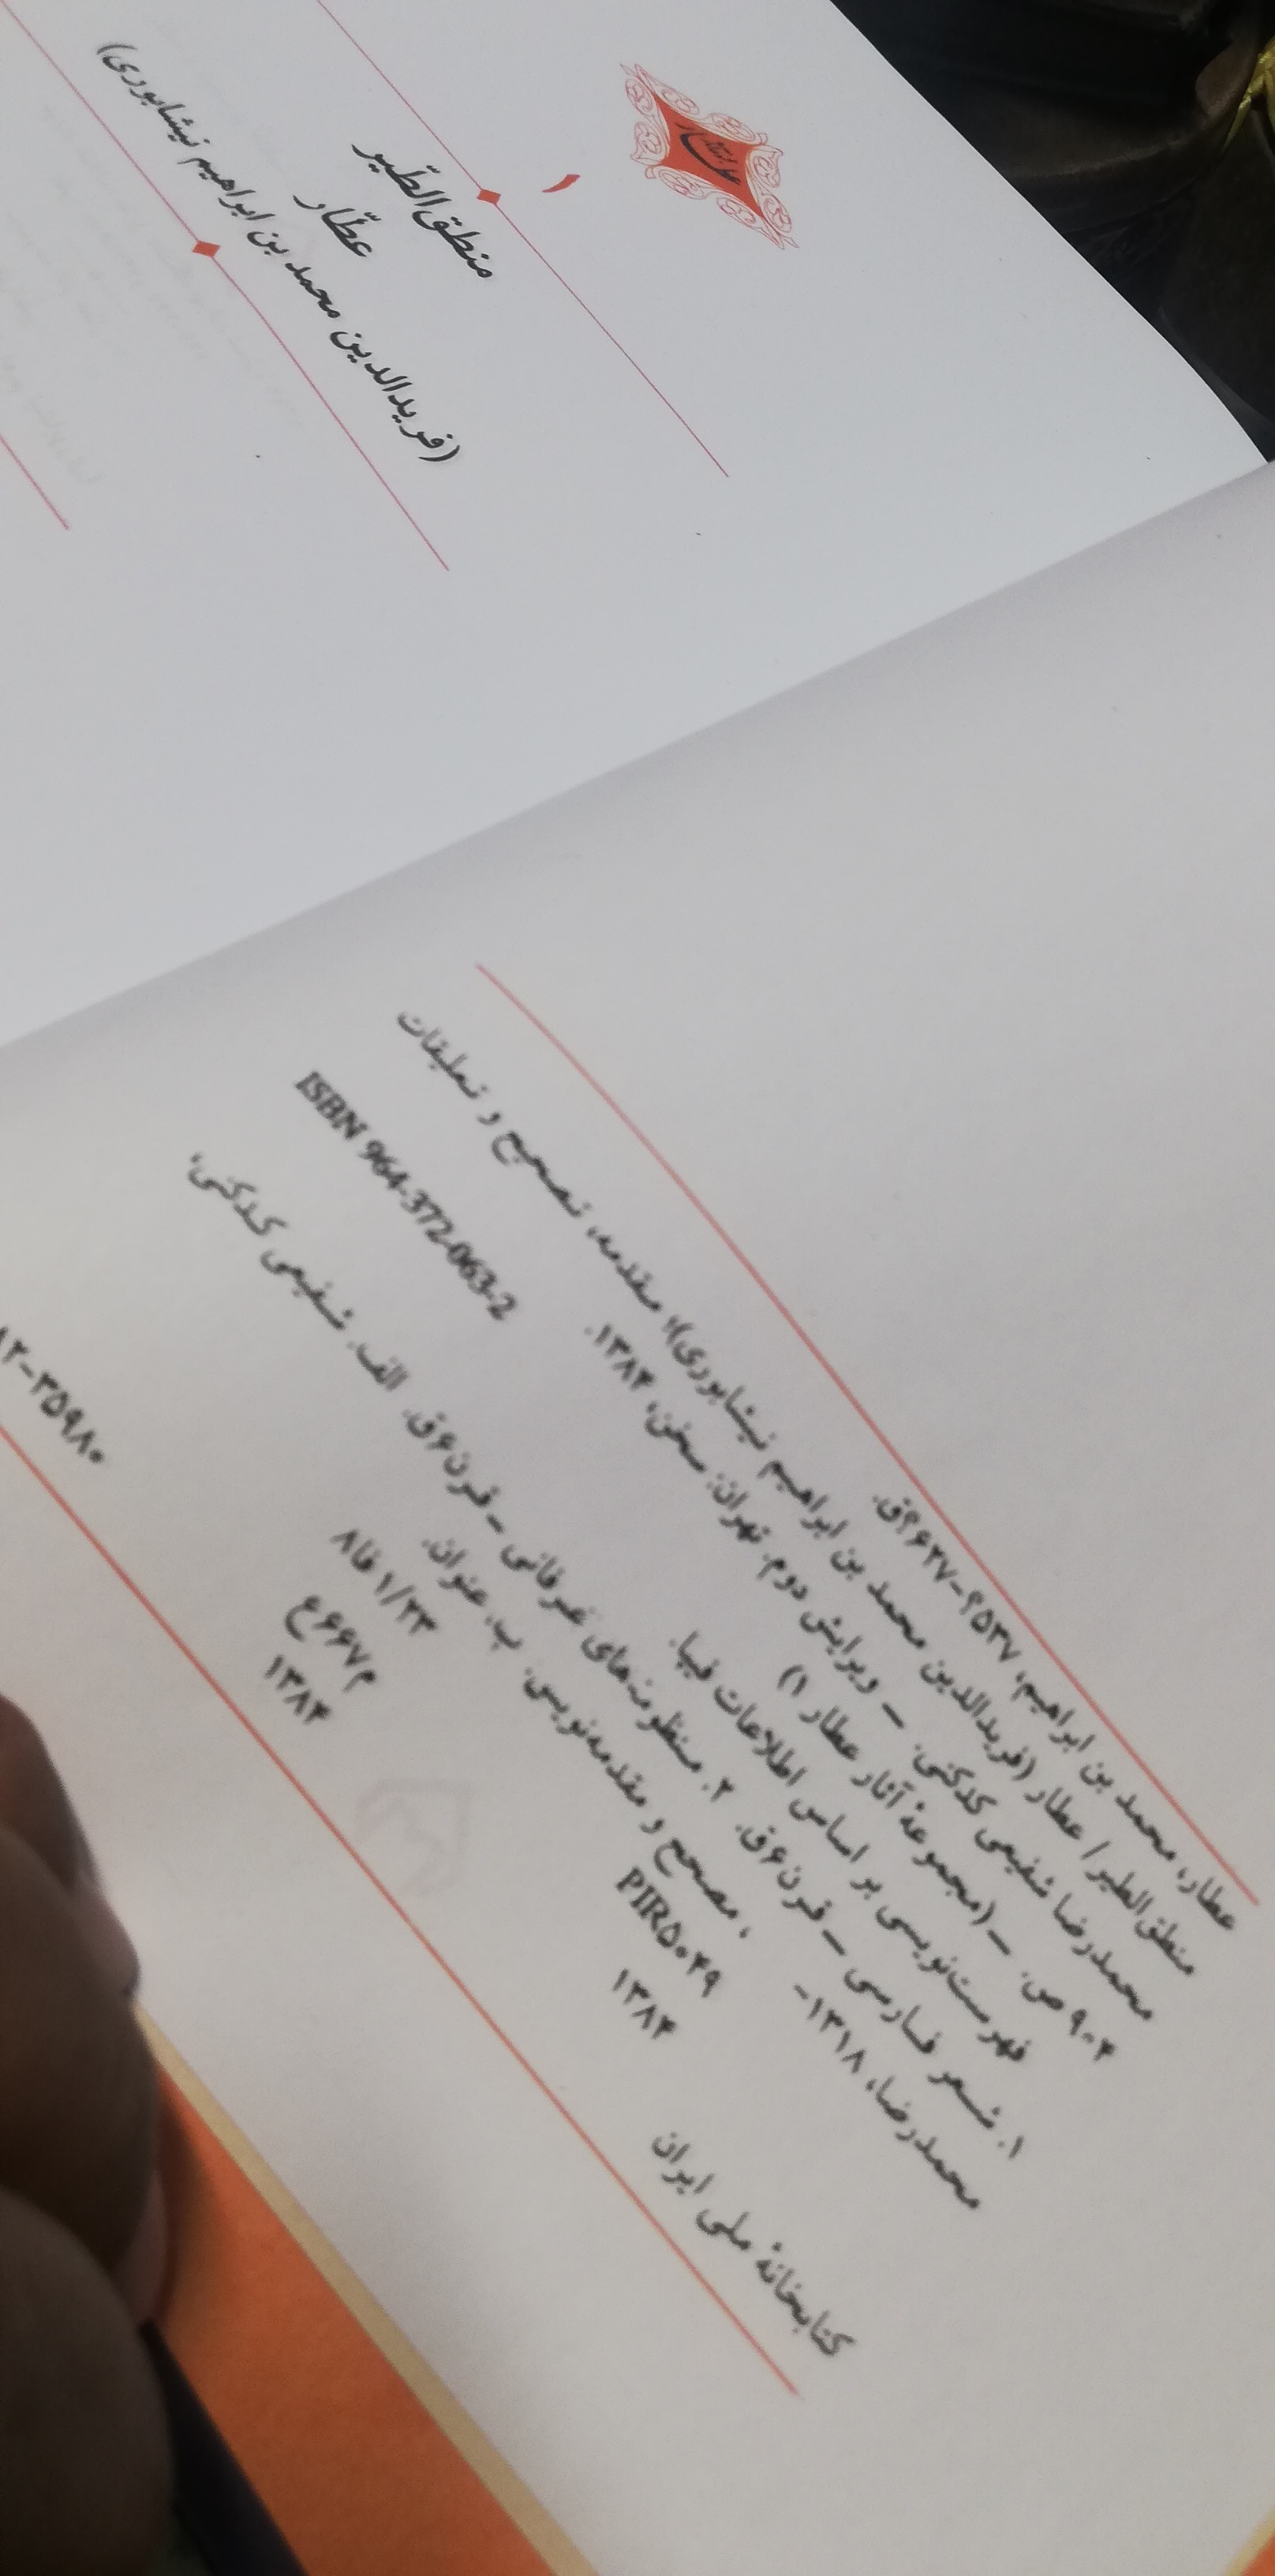 ۱
منطق‌الطّیر
عطّار
(فریدالدین محمد بن ابراهیم نیشابوری)
عطار، محمد بن ابراهیم، ۵۳۷؟-۶۲۷؟ق.
منطق‌الطیر / عطار (فریدالدین محمد بن ابراهیم نیشابوری)؛ مقدمه، تصحیح و تعلیقات
محمدرضا شفیعی کدکنی. ــ ویرایش دوم. تهران: سخن، ۱۳۸۴.
۹۰۴ ص. ــ (مجموعهٔ آثار عطار ۱)
ISBN 964-372-063-2
فهرست‌نویسی بر اساس اطلاعات فیپا.
۱. شعر فارسی ــ قرن ۶ق. ۲. منظومه‌های عرفانی ــ قرن ۶ق. الف. شفیعی کدکنی،
محمدرضا، ۱۳۱۸- ، مصحح و مقدمه‌نویس. ب. عنوان.
PIR۵۰۴۹ ۸فا۱/۲۳
۱۳۸۴ م۶۶۷ع
۱۳۸۴
کتابخانهٔ ملی ایران ۸۲-۳۵۹۸۰